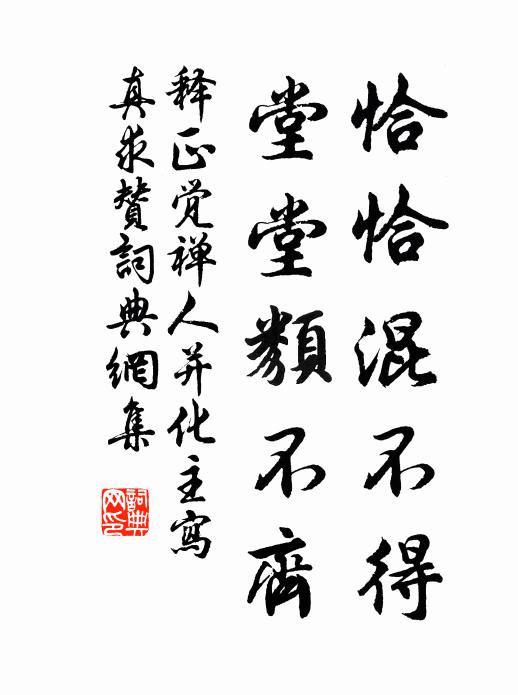 恰恰混不得
堂堂類不齊
释正觉禅人并化主寫
真求赞詞典網集
詞典网印